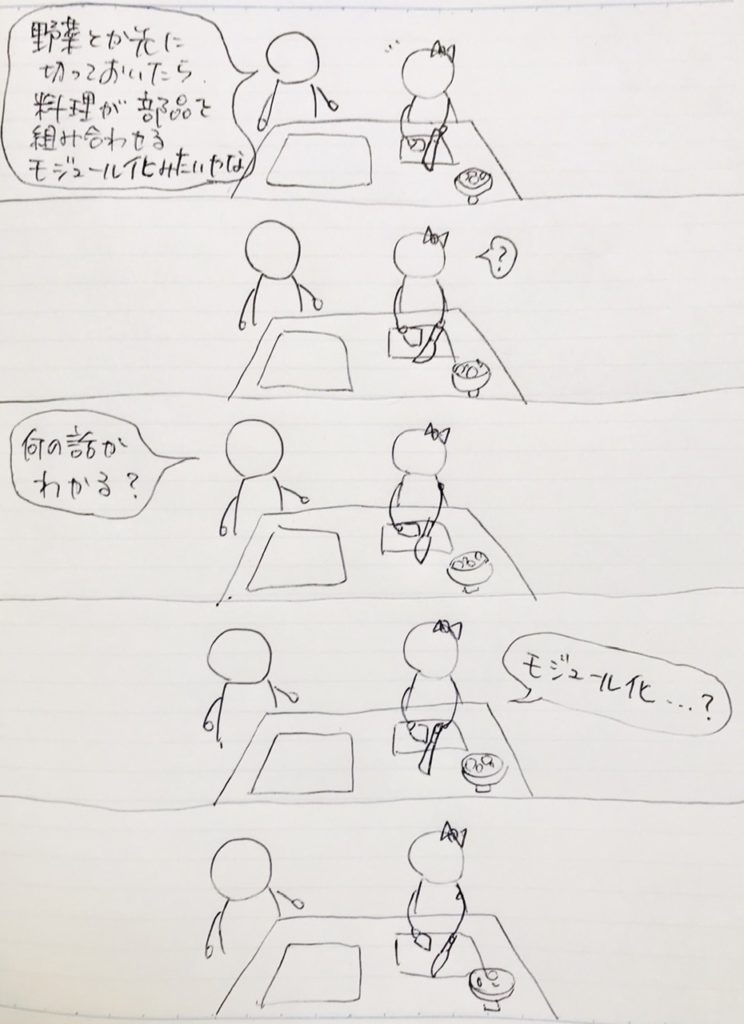 野菜とか先に
切っておいたら
料理が部品を
組み合わせる
モジュール化みたいやな
?
何の話か
わかる?
モジュール化...?